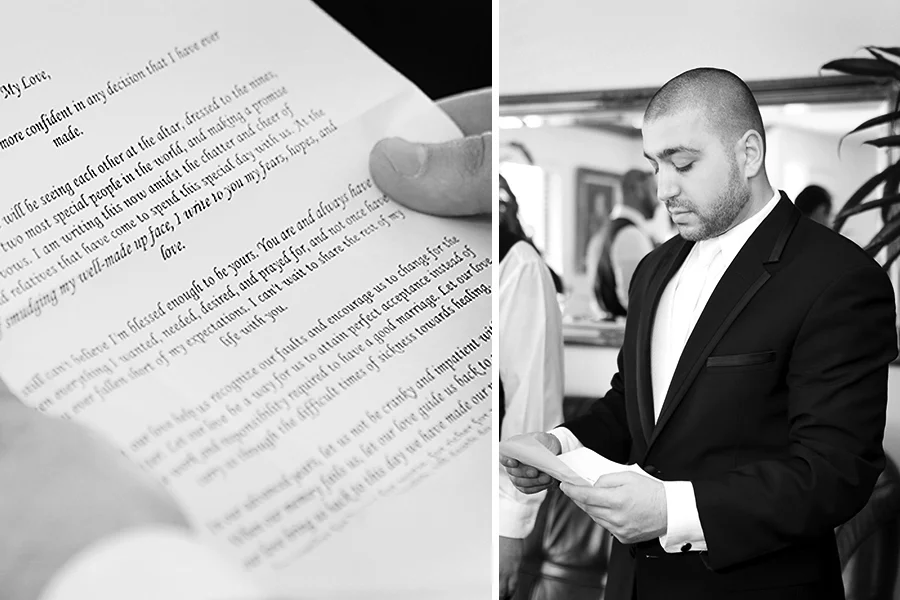 My Love,
more confident in any decision that I have ever
made.
will be seeing each other at the altar, dressed to the nines,
two most special people in the world, and making a promise
vows. I am writing this now amidst the chatter and cheer of
relatives that have come to spend this special day with us. At the
smudging my well-made up face, I write to you my fears, hopes, and
love.
still can't believe I'm blessed enough to be yours. You are and always have
everything I wanted, needed, desired, and prayed for, and not once have
ever fallen short of my expectations. I can't wait to share the rest of my
life with you.
our love help us recognize our faults and encourage us to change for the
Let our love be a way for us to attain perfect acceptance instead of
work, and responsibility required to have a good marriage. Let our love
carry us through the difficult times of sickness towards healing,
our advanced years, let us not be cranky and impatient with
When our memory fails us, let our love guide us back to
our love bring us back to this day we have made our